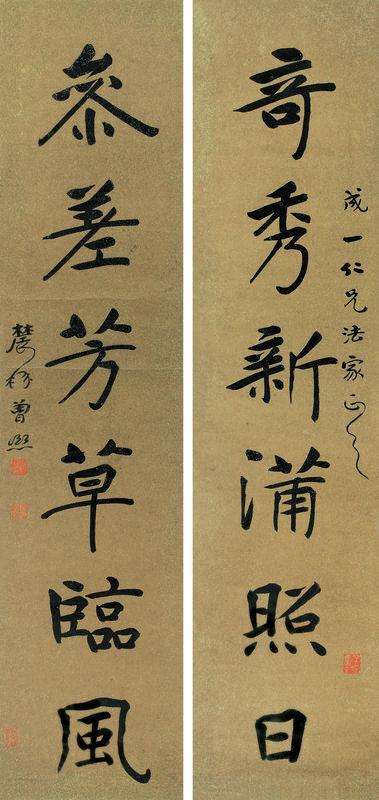 奇秀新蒲照日
成一仁兄法家正之
參差芳草臨風
農髯曾熙